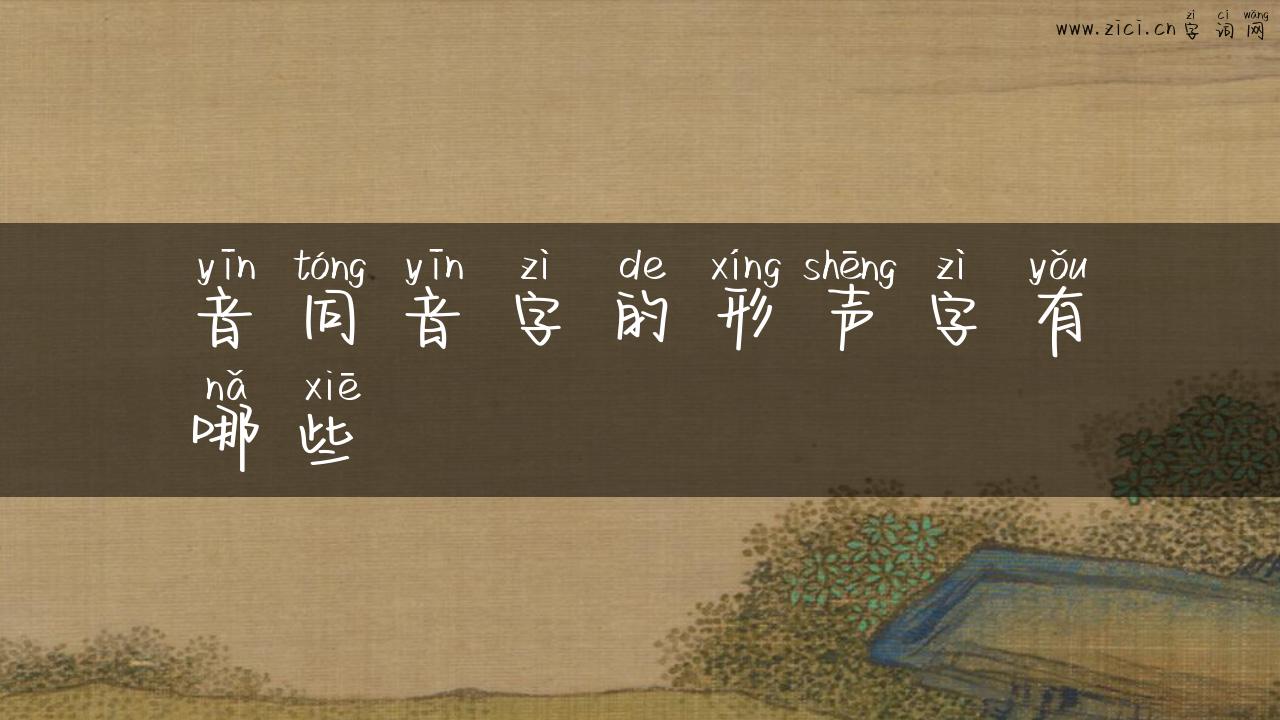 zì cí wǎng
www.zici.cn 字 词 网
yīn tóng yīn zì de xíng shēng zì yǒu
音 同 音 字 的 形 声 字 有
nǎ xiē
哪 些